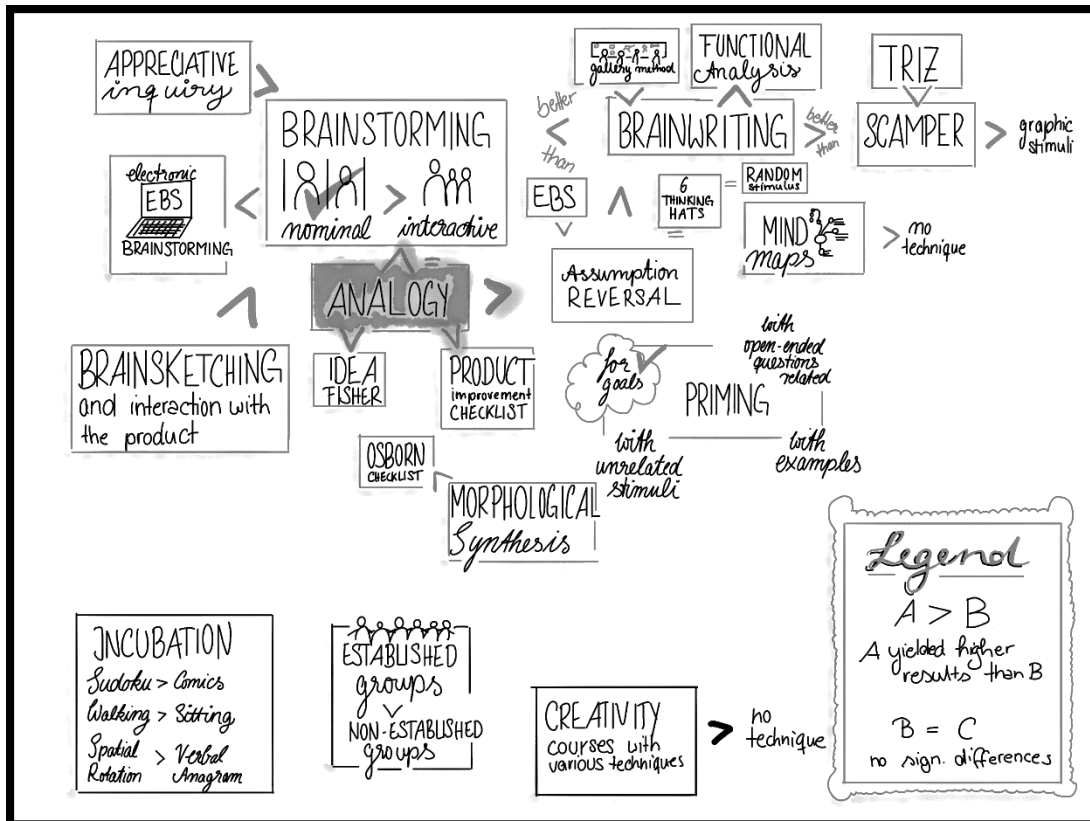 APPRECIATIVE
inquiry
>
BRAINSTORMING
nominal > interactive
electronic
EBS
BRAINSTORMING
<
gallery method
FUNCTIONAL
Analysis
TRIZ
better
<
than
BRAINWRITING
better
>
than
SCAMPER
>
graphic
stimuli
EBS
6
THINKING
HATS
=
RANDOM
stimulus
MIND
maps
>
no
technique
Assumption
REVERSAL
=
ANALOGY
>
=
BRAINSKETCHING
and interaction with
the product
IDEA
FISHER
PRODUCT
improvement
CHECKLIST
for
goals
PRIMING
with
open-ended
questions
related
with
unrelated
stimuli
with
examples
OSBORN
CHECKLIST
MORPHOLOGICAL
Synthesis
Legend
A > B
A yielded higher
results than B
B = C
no sign. differences
INCUBATION
Sudoku > Comics
Walking > Sitting
Spatial
Rotation > Verbal
Anagram
ESTABLISHED
groups
NON-ESTABLISHED
groups
CREATIVITY
courses with
various techniques
>
no
technique